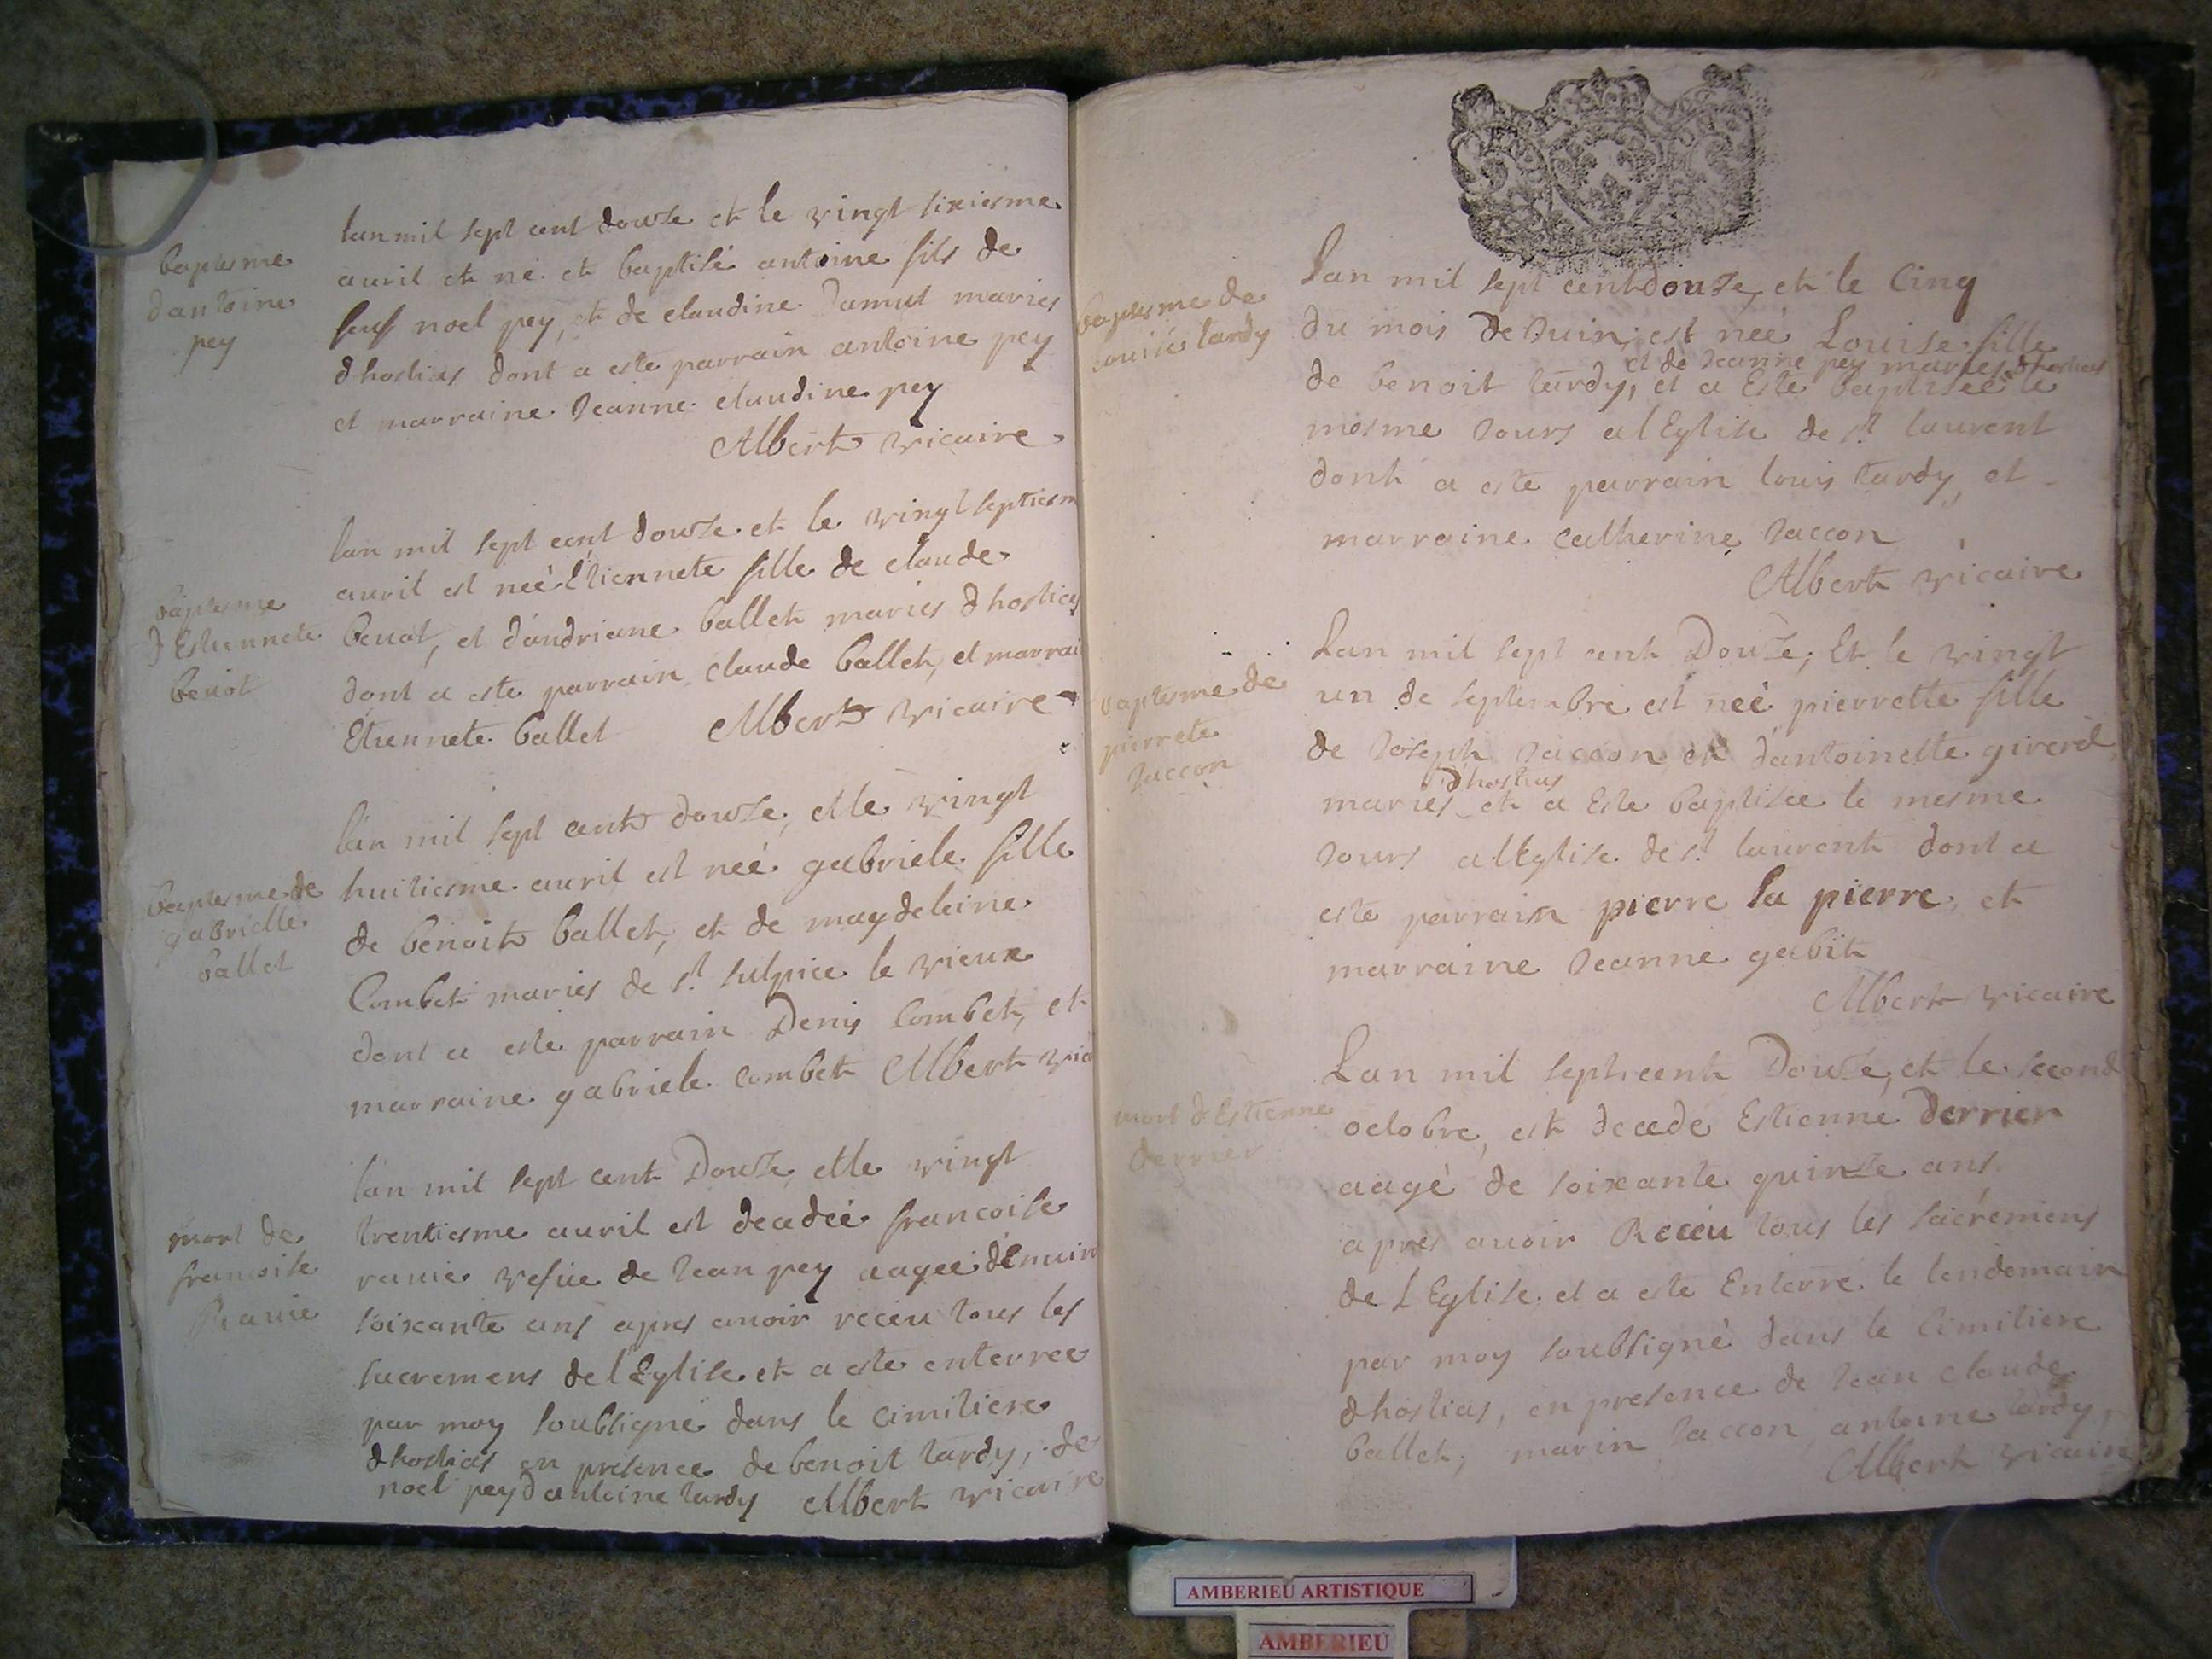 baptesme
dantoine
pey
lan mil sept cent douse et le vingt sixiesme
auril et né et baptisé antoine fils de
feuf noel pey, et de claudine Jamut mariés
dhostias dont a este parrain antoine pey
et marraine Jeanne claudine pey
Albert vicaire
baptesme
d'Estiennete
benot
lan mil sept cent douse et le vingt septiesm
auril est neé Etiennete fille de claude
benot, et d'andriane ballet mariés dhostias
dont a este parrain claude ballet, et marrai
Etiennete ballet Albert vicaire
baptesme de
gabrielle
ballet
lan mil sept cent douse, et le vingt
huitiesme auril est neé gabriele fille
de benoit ballet, et de magdeleine
Combet mariés de st sulpice le vieux
dont a este parrain Denis Combet, et
marraine gabriele combet Albert vic
mort de
francoise
Ravie
lan mil sept cent Douse et le vingt
trentiesme auril est decedeé francoise
ravie vefue de Jean pey aageé denuiro
soixante ans apres auoir receu tous les
sacremens de lEglise et a este enterree
par moy soubsigné dans le cimitiere
dhostias en presence de benoit tardy, de
noel pey d antoine tardy Albert vicaire
baptesme de
louise tardy
Lan mil sept cent douse, et le Cinq
du mois de Juin, est neé Louise fille
et de Jeanne pey mariés dhostias
de benoit tardy, et a Este baptisée le
mesme Jours a lEglise de st laurent
dont a este parrain louis tardy, et
marraine catherine Jaccon
Albert vicaire
baptesme de
pierrete
Jaccon
Lan mil sept cent Douse, Et le vingt
un de septembre est neé pierrette fille
de Joseph Jaccon et d'antoinette girerd
dhostias
mariés et a Este baptisée le mesme
Jours a lEglise de st laurent dont a
este parrain pierre la pierre, et
marraine Jeanne gabit
Albert vicaire
mort d'Estienne
derrier
Lan mil sept cent Douse, et le second
octobre, est decede Estienne Derrier
aagé de soixante quinse ans
apres auoir Receu tous les sacremens
de LEglise et a este Enterre le lendemain
par moy soubsigné dans le Cimitiere
dhostias, en presence de Jean claude
ballet, marin Jaccon antoine tardy,
Albert vicaire
AMBERIEU ARTISTIQUE
AMBERIEU